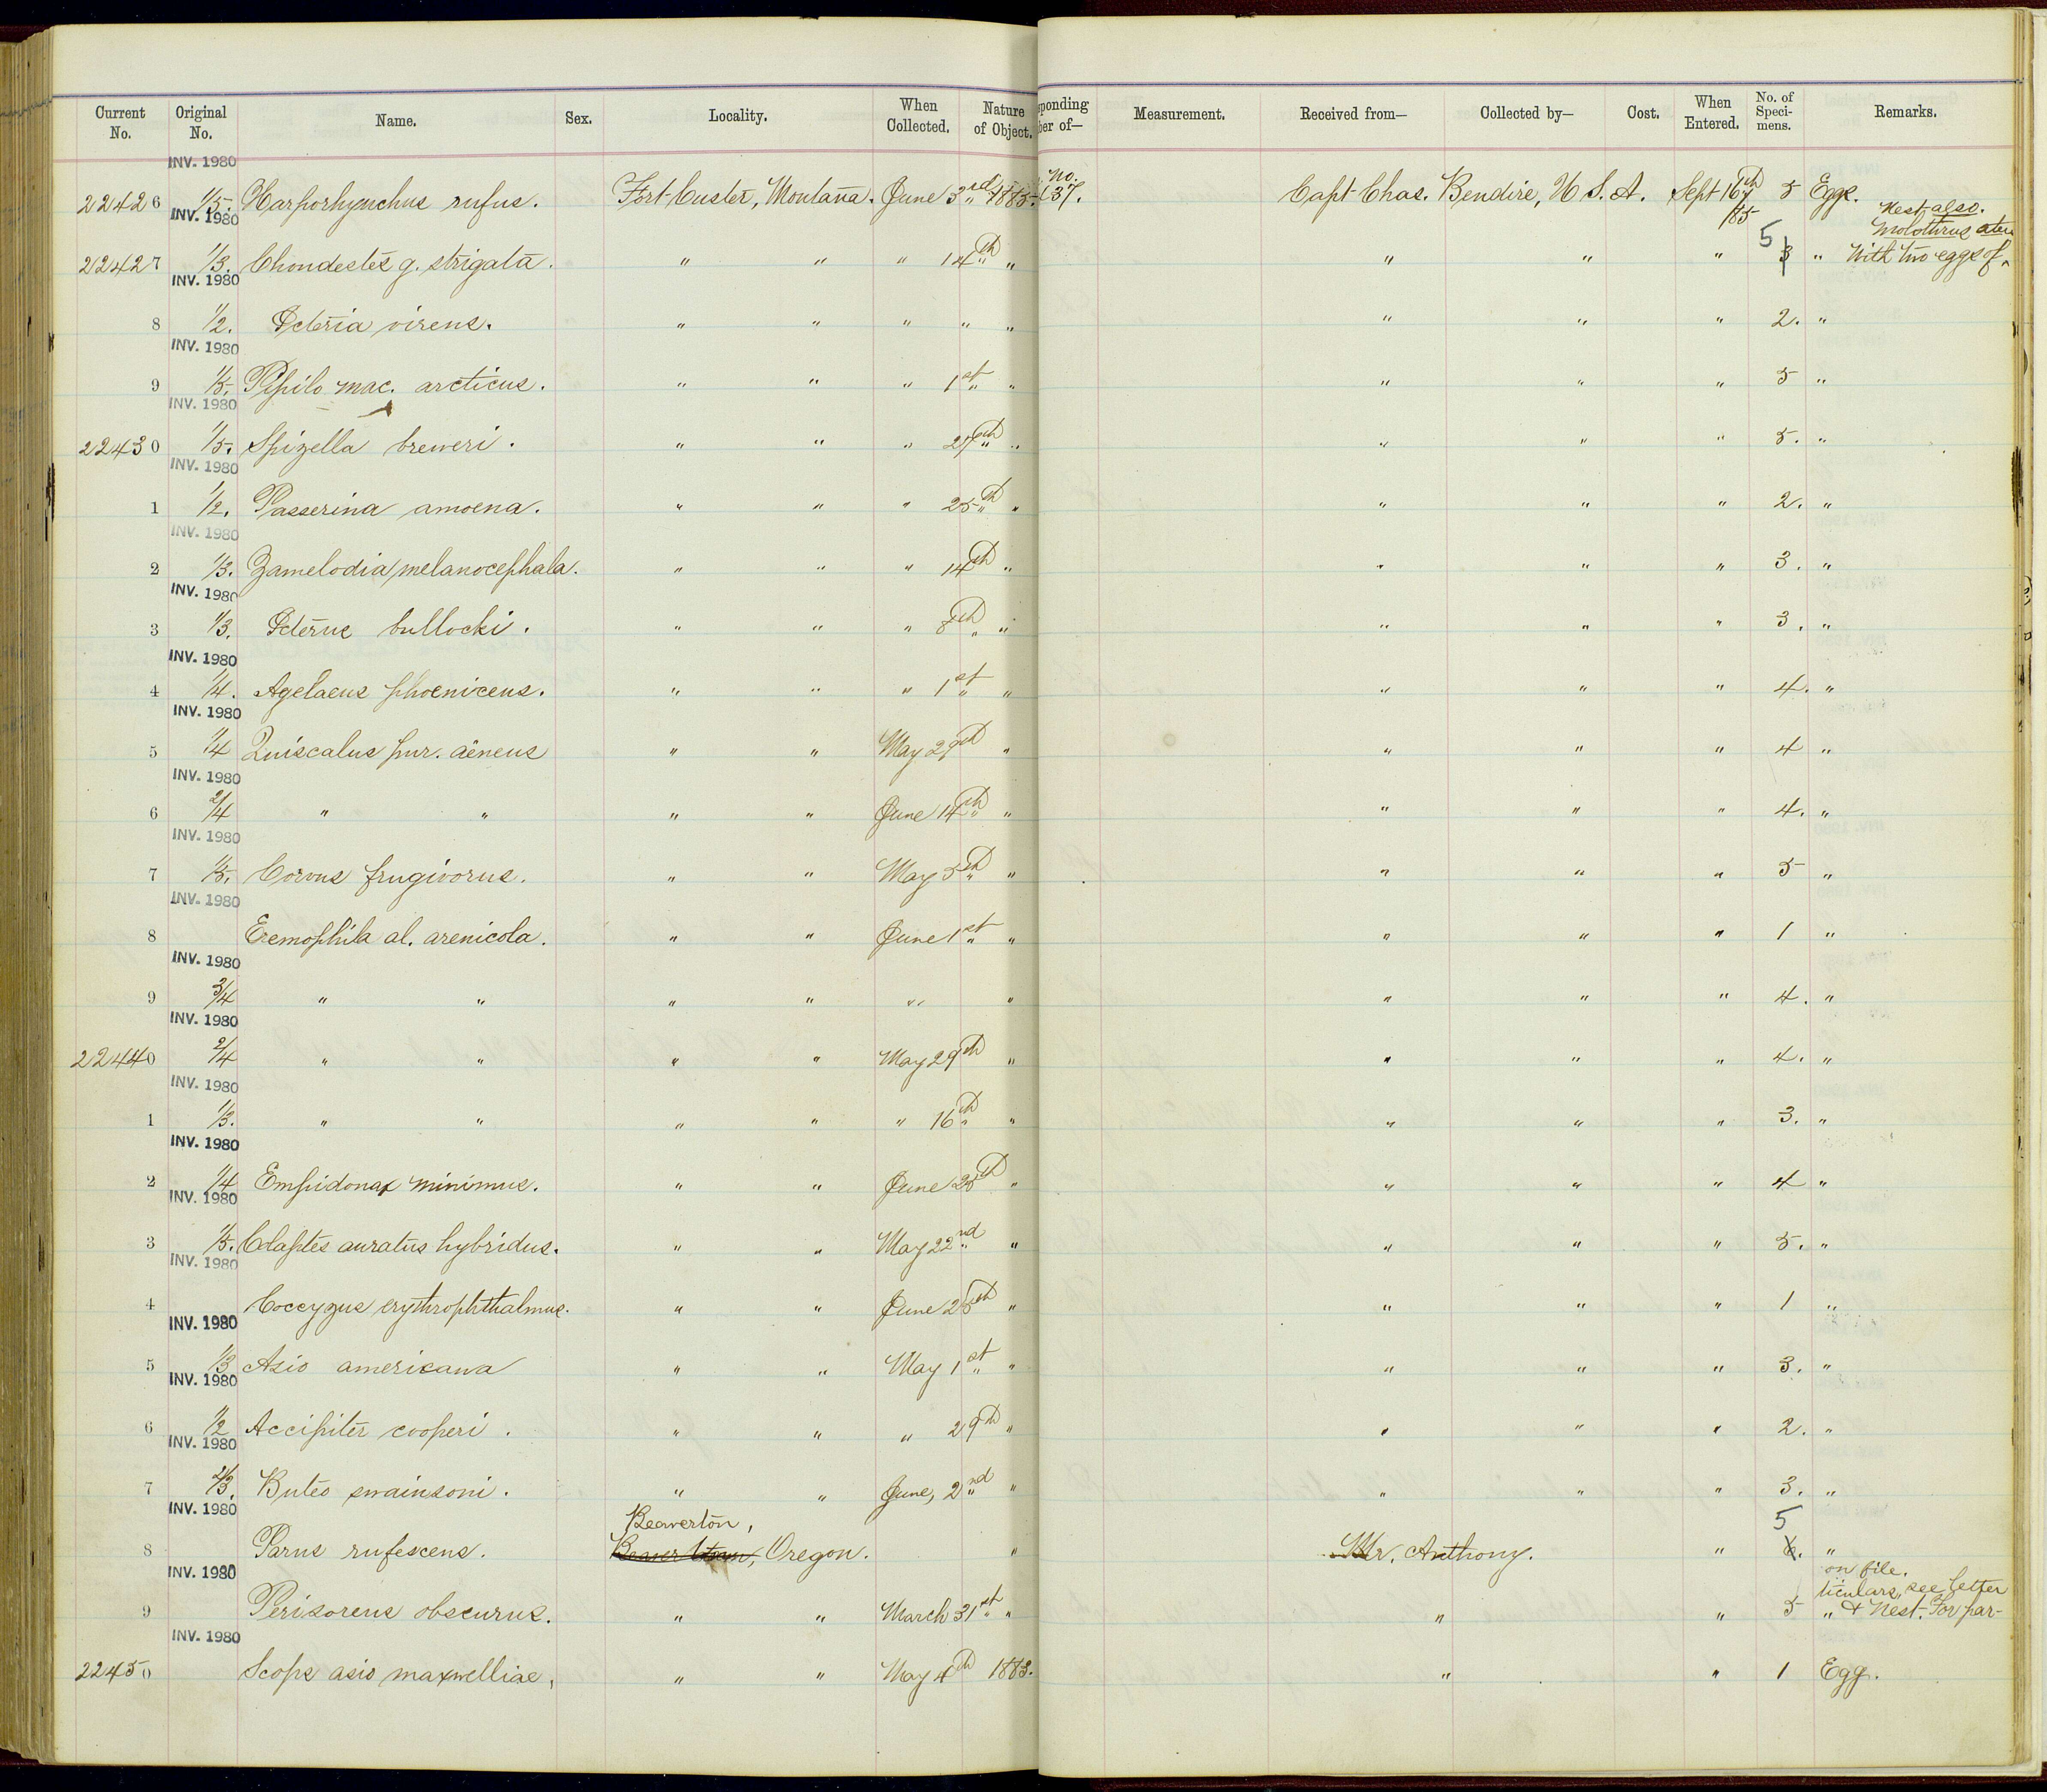 Current No. Original No. Name. Sex. Locality. When Collected. Nature of Object. sponding ber of— Measurement. Received from— Collected by— Cost. When Entered. No. of Speci-mens. Remarks.
INV. 1980
22426 1/5. Harporhynchus rufus. Fort Custer, Montana. June 3rd 1885. No. 137. Capt Chas. Bendire, U.S.A. Sept 16th /85 5 Eggs.
INV. 1980
Nest also.
Molothrus ater
22427 1/3. Chondestes g. strigata. " " " 14th " " " " 5 3 " With two eggs of ^
INV. 1980
8 1/2. Icteria virens. " " " " " " " " 2. "
INV. 1980
9 1/5. Pipilo mac. arcticus. " " " 1st " " " " 5 "
INV. 1980
22430 1/5. Spizella breweri. " " " 27th " " " " 5. "
INV. 1980
1 1/2. Passerina amoena. " " " 25th " " " " 2. "
INV. 1980
2 1/3. Zamelodia melanocephala. " " " 14th " " " " 3. "
INV. 1980
3 1/3. Icterus bullocki. " " " 8th " " " " 3. "
INV. 1980
4 1/4. Agelaeus phoeniceus. " " " 1st " " " " 4. "
INV. 1980
5 1/4 Quiscalus pur. aëneus " " May 29th " " " " 4 "
INV. 1980
6 2/4 " " " " June 14th " " " " 4. "
INV. 1980
7 1/5. Corvus frugivorus. " " May 5th " " " " 5 "
INV. 1980
8 Eremophila al. arenicola. " " June 1st " " " " 1 "
INV. 1980
9 3/4 " " " " " " " " " 4. "
INV. 1980
22440 2/4 " " " " May 29th " " " " 4. "
INV. 1980
1 1/3. " " " " " 16th " " " " 3. "
INV. 1980
2 1/4 Empidonax minimus. " " June 25th " " " " 4 "
INV. 1980
3 1/5. Colaptes auratus hybridus. " " May 22nd " " " " 5. "
INV. 1980
4 Coccyzus erythrophthalmus. " " June 26th " " " " 1 "
INV. 1980
5 1/3 Asio americana " " May 1st " " " " 3. "
INV. 1980
6 1/2 Accipiter cooperi. " " " 29th " " " " 2. "
INV. 1980
7 2/3. Buteo swainsoni. " " June, 2nd " " " " 3. "
INV. 1980
Beaverton, 5
8 Parus rufescens. Beaver town, Oregon. " Mr. Anthony. " 6. "
INV. 1980
on file.
ticulars, see letter
9 Perisoreus obscurus. " " March 31st " " " 5 " & Nest. For par-
INV. 1980
22450 Scops asio maxwelliae. " " May 4th 1883. " " 1 Egg.